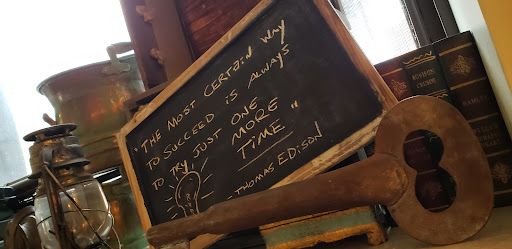 "THE MOST CERTAIN WAY
TO SUCCEED IS ALWAYS
TO TRY, JUST ONE
MORE
TIME"
- THOMAS EDISON
ROBINSON
CRUSOE
HAMLET